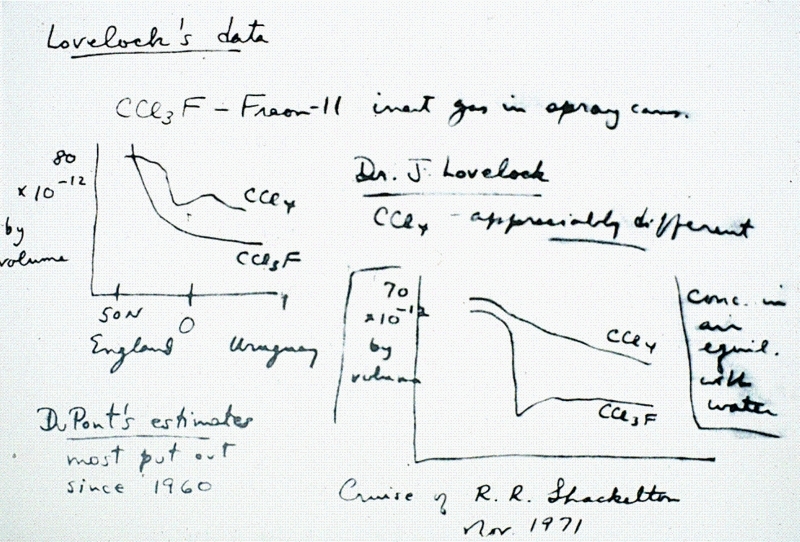 Lovelock's data
CCl₃F – Freon-11 inert gas in spray cans.
80
× 10⁻¹²
by
volume
CCl₄
CCl₃F
50N
0
England Uruguay
Dr. J. Lovelock
CCl₄ – appreciably different
70
×10⁻¹²
by
volume
CCl₄
CCl₃F
Conc. in
air
equil.
with
water
DuPont's estimates
most put out
since 1960
Cruise of R. R. Shackelton
Nov. 1971